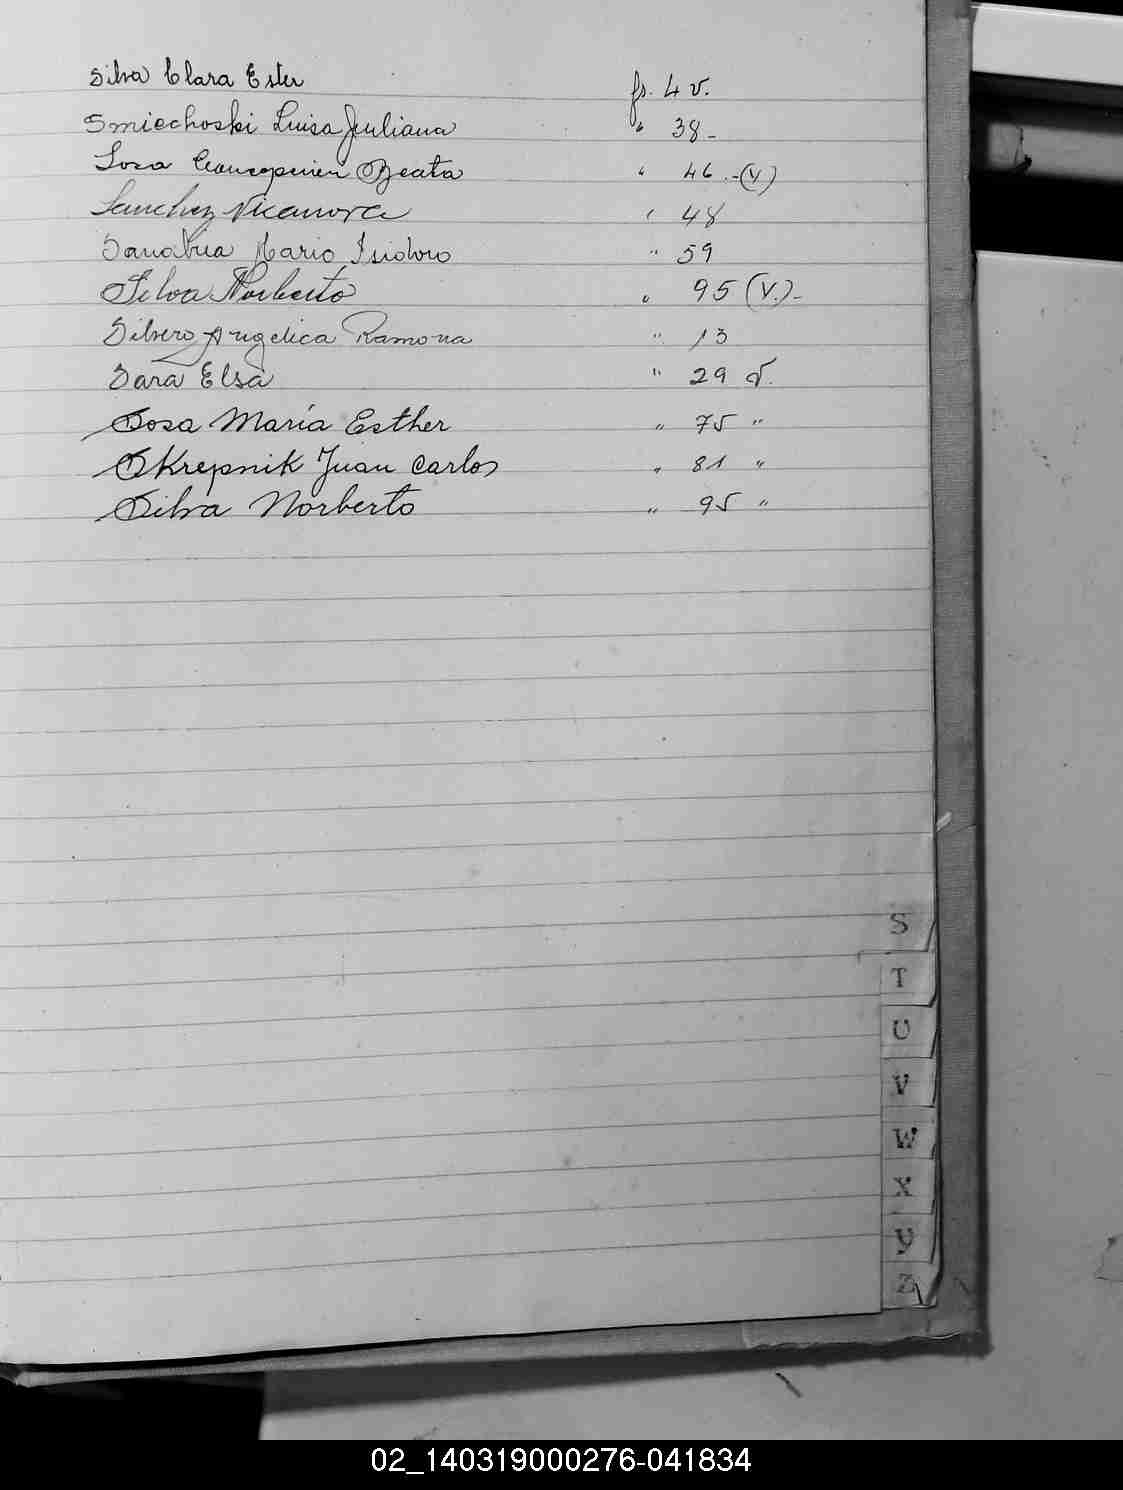 Silva Clara Ester fs. 4 v.
Smiechoski Luisa Juliana " 38-
Sosa Concepción Beata " 46.-(v)
Sanchez Nicanora " 48
Sanabria Mario Isidoro " 59
Silva Norberto " 95 (v.)-
Silvero Angelica Ramona " 13
Sara Elsa " 29 v.
Sosa María Esther " 75 "
Skrepnik Juan Carlos " 81 "
Silva Norberto " 95 "
S
T
U
V
W
X
y
Z
02_140319000276-041834